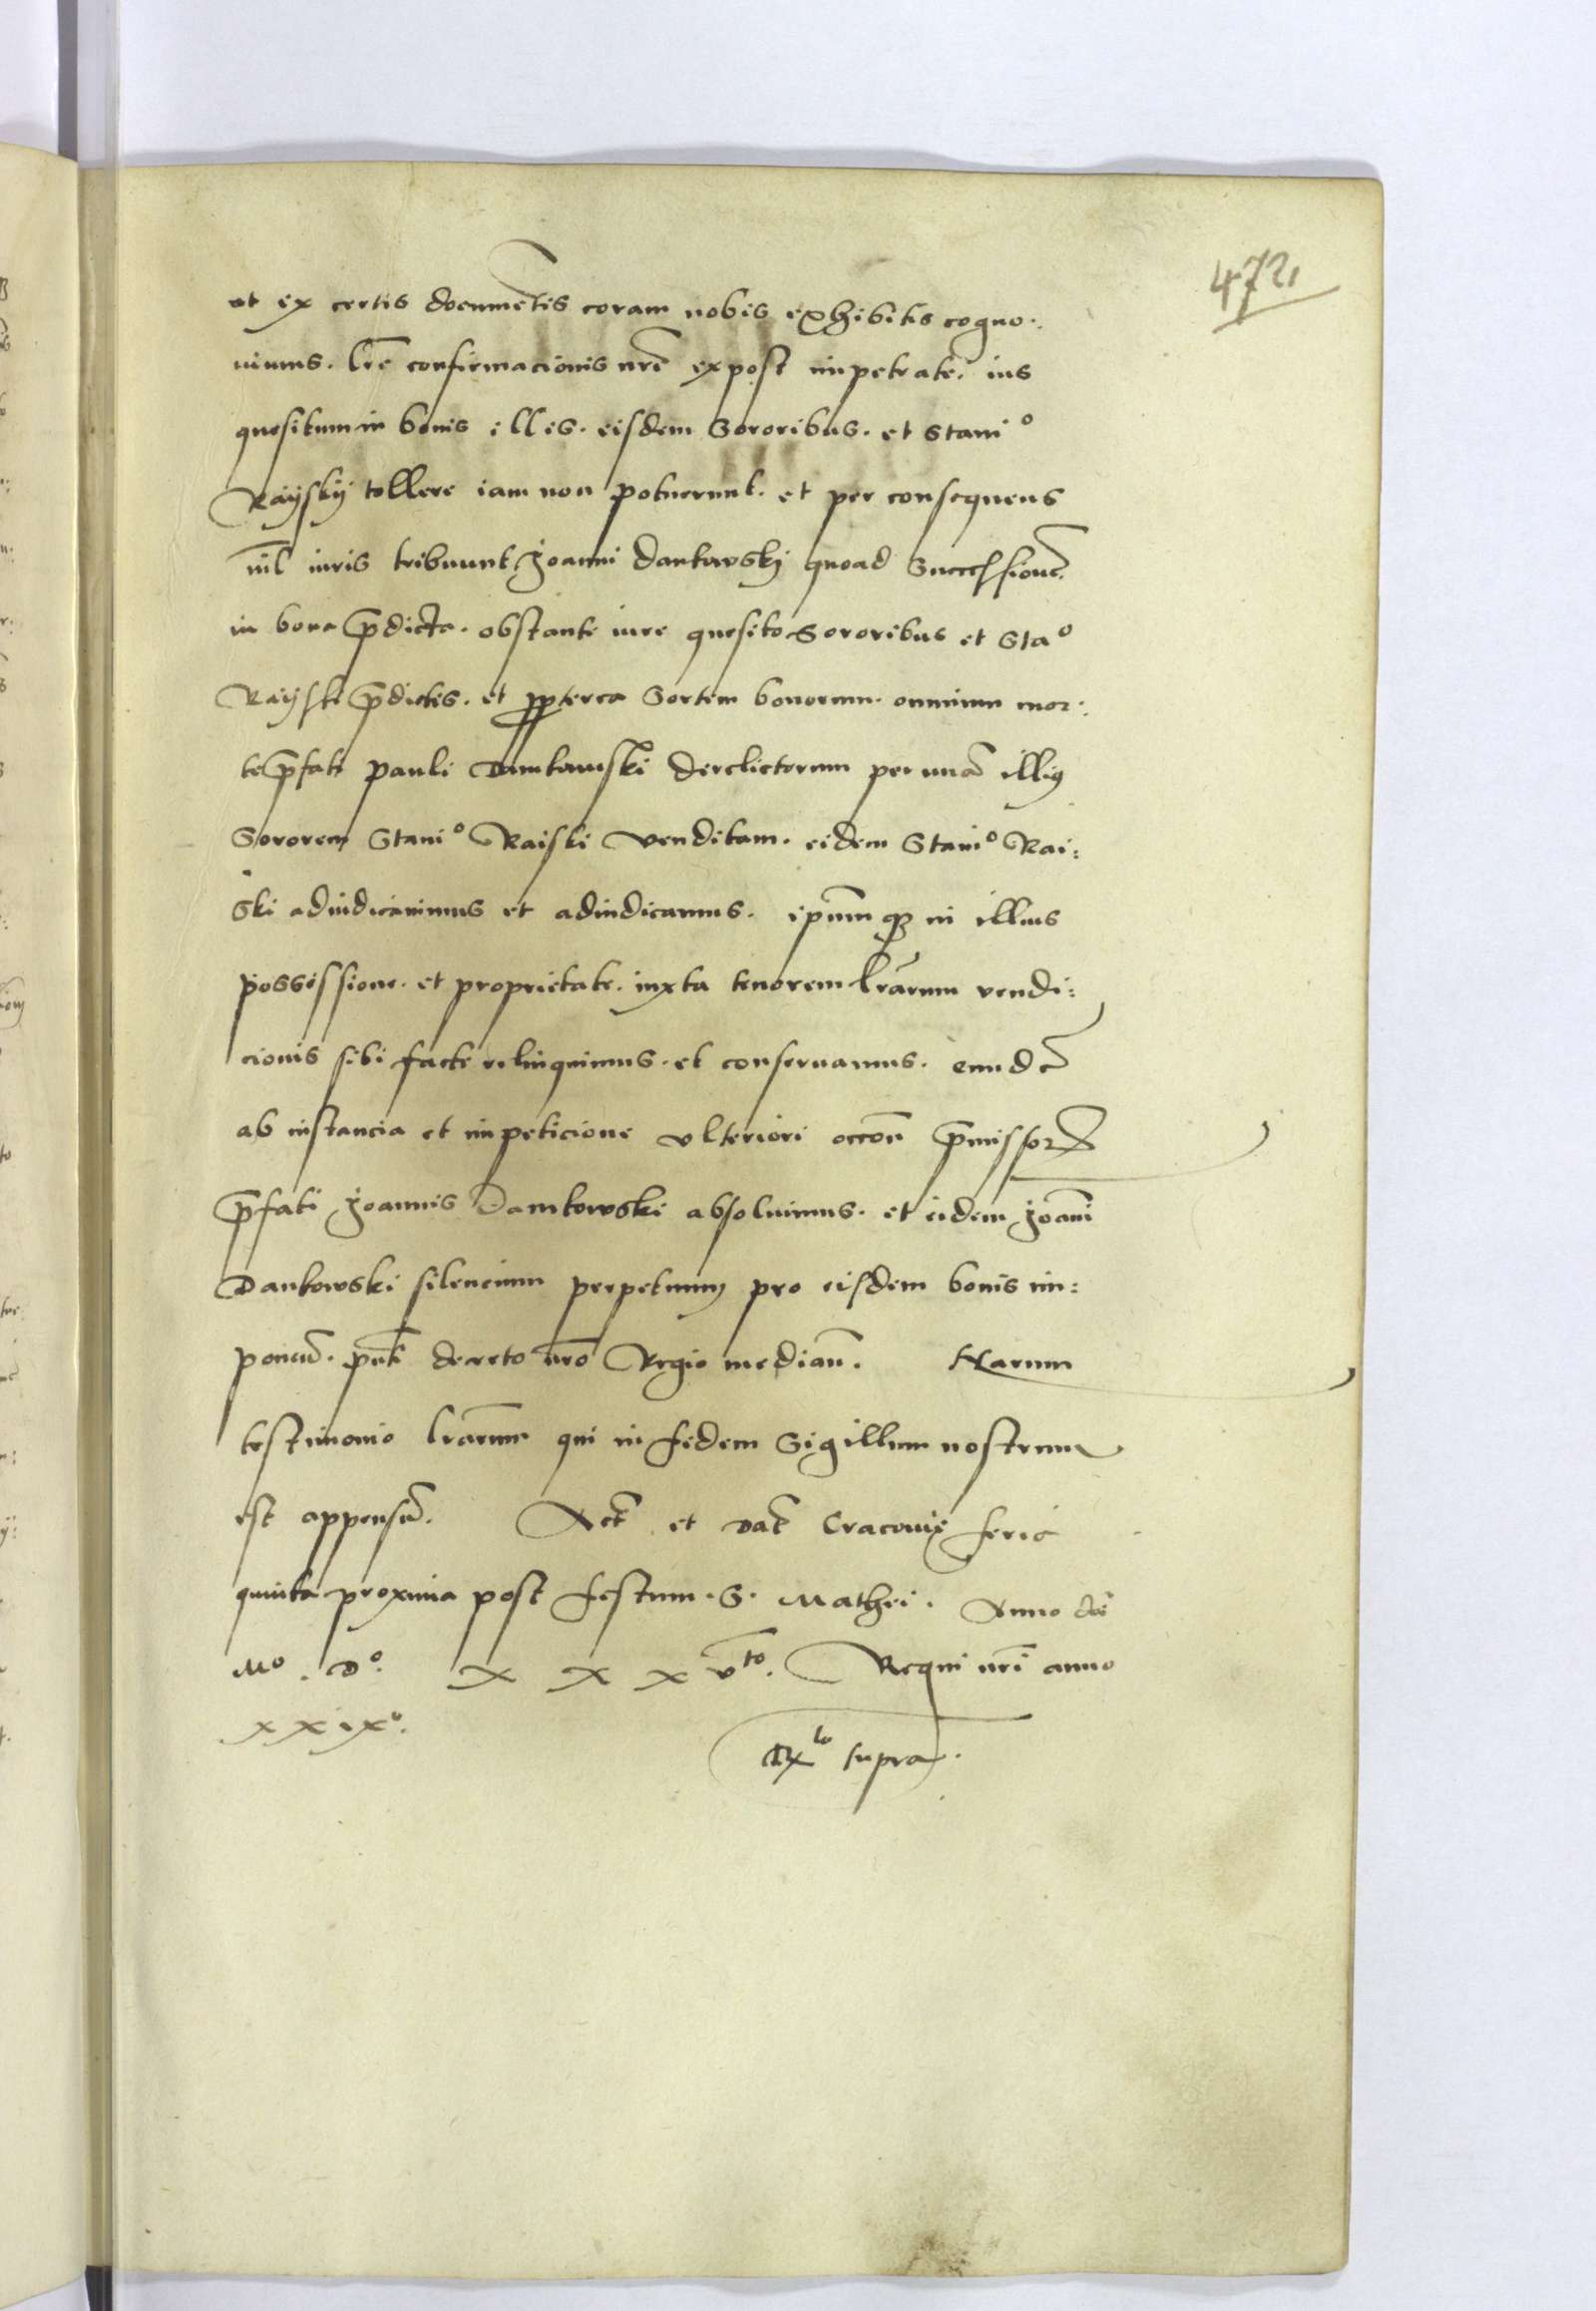 472
ut ex certis documẽtis coram nobis exhibitis cogno.
uimus. lrẽ confirmacionis nrẽ expost impetrate. ius
quesitum in bonis illis. eisdem Sororibus. et Staniº
Raÿskÿ tollere iam non potuerunt. et per consequens
nil iuris tribuunt Joanni Dankowskj quoad Successionẽ
in bona p̃dicta. obstante iure quesito Sororibus et Staº
Raÿski p̃dictis. et propterea Sortem bonorum. omnium mor:
te p̃fati pauli Damkowski derelictorum per unã illiꝰ
Sororem Staniº Raiski venditam. eidem Staniº Rai:
ski adiudicauimus et adiudicamus. ipũmqꝫ in illius
possessione. et proprietate. iuxta tenorem lrarum vendi:
cionis sibi facte relinquimus. et conseruamus. eundẽ
ab instancia et impeticione vlteriori occõne p̃missorꝝ
p̃fati Joannis Damkowski absoluimus. et eidem Joañi
Dankowski silencium perpetuum pro eisdem bonis im:
ponim̃. pñti decreto nr̃o Regio medianṫ. Harum
testimonio lrarum qui in fidem Sigillum nostrum
est appensũ. Act̃ et Dat̃ Cracouię feria
quinta proxima post festum. S. Mathei. Anno dñi
Mº. Dº. X X X vᵗᵒ. Regni nri anno
xxixº.
Rxᵗᵒ supra.